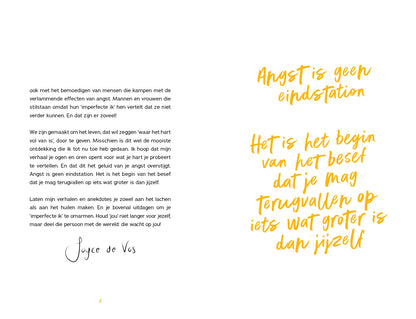 ook met het bemoedigen van mensen die kampen met de
verlammende effecten van angst. Mannen en vrouwen die
stilstaan omdat hun 'imperfecte ik' hen vertelt dat ze niet
verder kunnen. En dat zijn er zoveel!
We zijn gemaakt om het leven, dat wil zeggen 'waar het hart
vol van is', door te geven. Misschien is dit wel de mooiste
ontdekking die ik tot nu toe heb gedaan. Ik hoop dat mijn
verhaal je ogen en oren opent voor wat je hart je probeert
te vertellen. En dat dit het geluid van je angst overstijgt.
Angst is geen eindstation. Het is het begin van het besef
dat je mag terugvallen op iets wat groter is dan jijzelf.
Laten mijn verhalen en anekdotes je zowel aan het lachen
als aan het huilen maken. En je bovenal uitdagen om je
'imperfecte ik' te omarmen. Houd 'jou' niet langer voor jezelf,
maar deel die persoon met de wereld die wacht op jou!
Joyce de Vos
Angst is geen
eindstation
Het is het begin
van het besef
dat je mag
terugvallen op
iets wat groter is
dan jijzelf